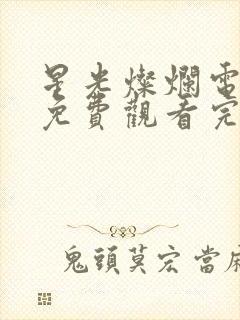 星光燦爛電
免費觀看完
鬼頭莫宏 當麻